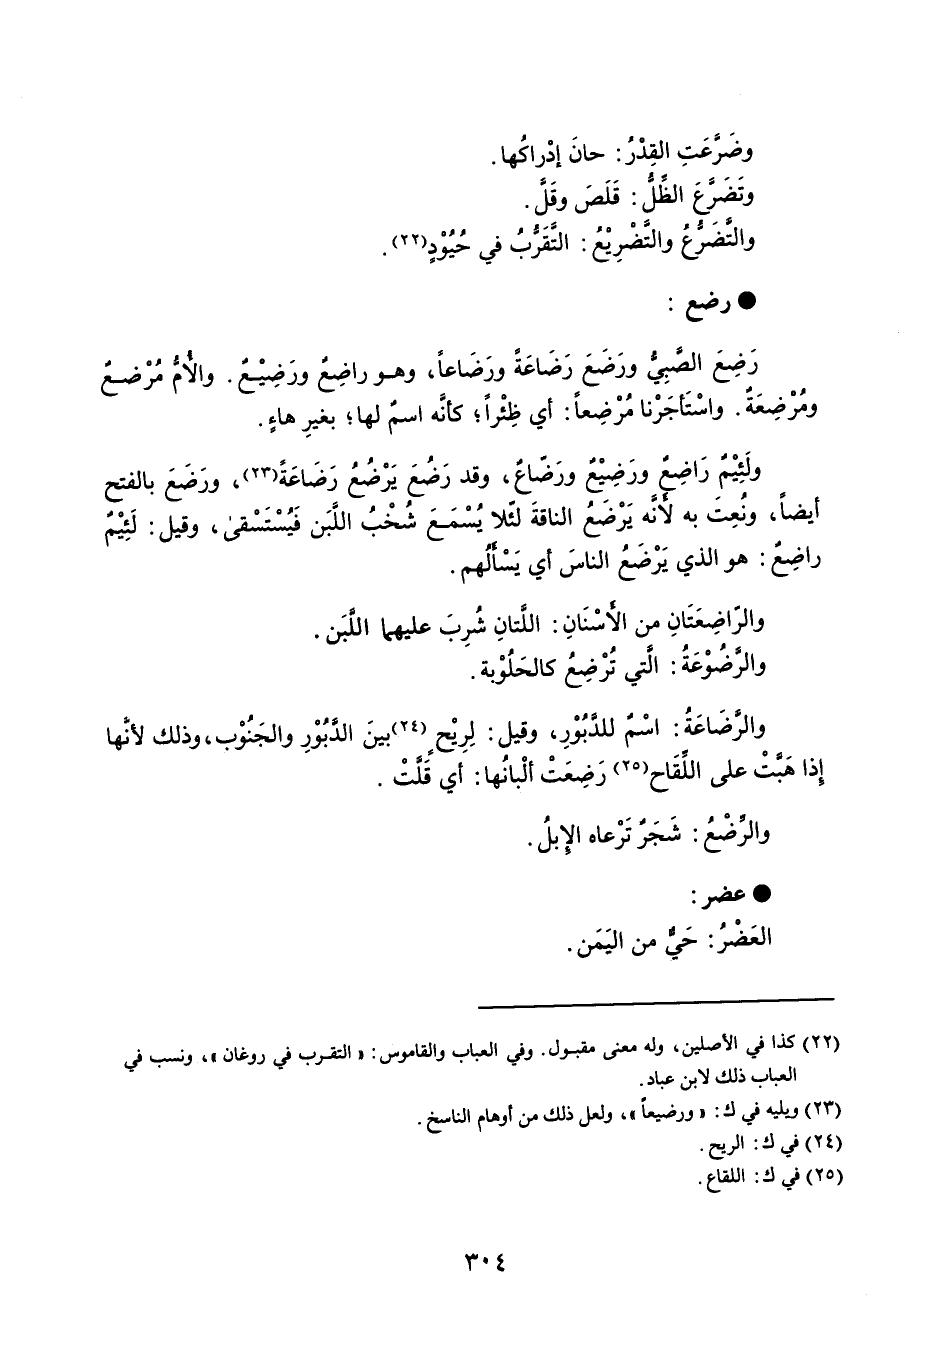 وضَرَّعَتِ القِدْرُ: حانَ إدْراكُها.
وتَضَرَّعَ الظِّلُّ: قَلَصَ وقَلَّ.
والتَّضَرُّعُ والتَّضْرِيْعُ: التَّقَرُّبُ في حُيُوْدٍ(٢٢).
● رضع :
رَضِعَ الصَّبِيُّ ورَضَعَ رَضَاعَةً ورَضَاعاً، وهو راضِعٌ ورَضِيْعٌ. والأُمُّ مُرْضعٌ
ومُرْضِعَةٌ. واسْتَأجَرْنا مُرْضِعاً: أي ظِئْراً؛ كأنَّه اسمٌ لها؛ بغيرِ هاءٍ.
ولَئِيْمٌ رَاضِعٌ ورَضِيْعٌ ورَضّاعٌ، وقد رَضُعَ يَرْضُعُ رَضَاعَةً(٢٣)، ورَضَعَ بالفتح
أيضاً، ونُعِتَ به لأنَّه يَرْضَعُ الناقةَ لئلا يُسْمَعَ شُخْبُ اللَّبَن فَيُسْتَسْقىٰ، وقيل: لَئِيْمٌ
راضِعٌ: هو الذي يَرْضَعُ الناسَ أي يَسْألُهم.
والرّاضِعَتَانِ من الأسْنَانِ: اللَّتانِ شُرِبَ عليهما اللَّبَن.
والرَّضُوْعَةُ: الَّتي تُرْضِعُ كالحَلُوْبة.
والرَّضَاعَةُ: اسْمٌ للدَّبُوْرِ، وقيل: لِرِيْحٍ(٢٤) بينَ الدَّبُوْرِ والجَنُوْب، وذلك لأنَّها
إذا هَبَّتْ على اللِّقَاح(٢٥) رَضِعَتْ ألْبانُها: أي قَلَّتْ .
والرِّضْعُ: شَجَرٌ تَرْعاه الإبلُ.
● عضر:
العَضْرُ: حَيٌّ من اليَمَن.
(٢٢) كذا في الأصلين، وله معنى مقبول. وفي العباب والقاموس: « التقرب في روغان »، ونسب في
العباب ذلك لابن عباد.
(٢٣) ويليه في ك: « ورضيعاً »، ولعل ذلك من أوهام الناسخ.
(٢٤) في ك: الريح.
(٢٥) في ك: اللقاع.
٣٠٤